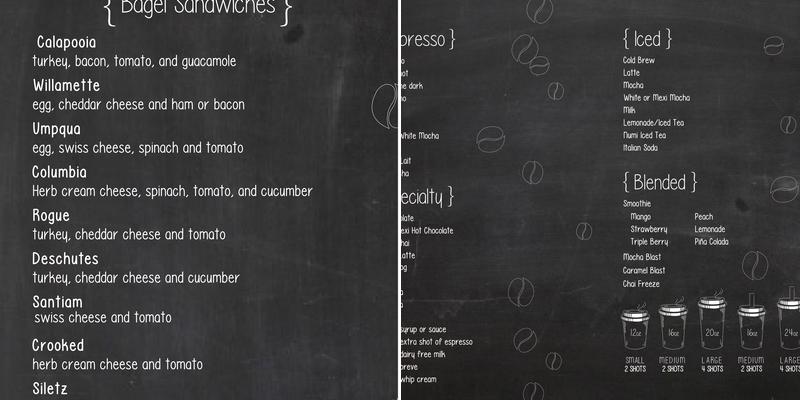 { Bagel Sandwiches }
Calapooia
turkey, bacon, tomato, and guacamole
Willamette
egg, cheddar cheese and ham or bacon
Umpqua
egg, swiss cheese, spinach and tomato
Columbia
Herb cream cheese, spinach, tomato, and cucumber
Rogue
turkey, cheddar cheese and tomato
Deschutes
turkey, cheddar cheese and cucumber
Santiam
swiss cheese and tomato
Crooked
herb cream cheese and tomato
Siletz
presso }
e dark
White Mocha
Lait
ecialty }
olate
exi Hot Chocolate
hai
atte
syrup or sauce
extra shot of espresso
dairy free milk
breve
whip cream
{ Iced }
Cold Brew
Latte
Mocha
White or Mexi Mocha
Milk
Lemonade/Iced Tea
Numi Iced Tea
Italian Soda
{ Blended }
Smoothie
Mango Peach
Strawberry Lemonade
Triple Berry Piña Colada
Mocha Blast
Caramel Blast
Chai Freeze
12oz 16oz 20oz 16oz 24oz
SMALL MEDIUM LARGE MEDIUM LARGE
2 SHOTS 2 SHOTS 4 SHOTS 2 SHOTS 4 SHOTS